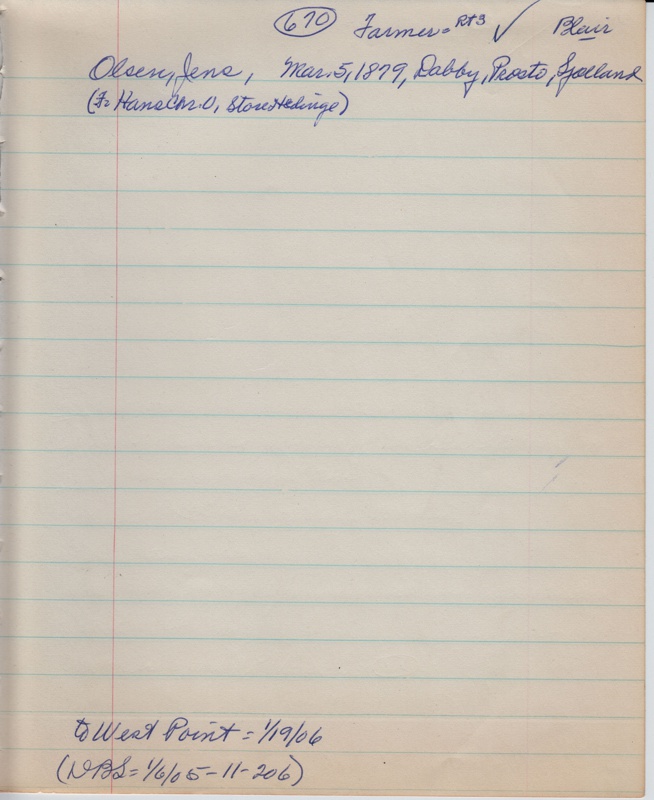 670 Farmer = Rt 3 ✓ Blair
Olsen, Jens, Mar. 5, 1879, Dabby, Prosto, Sjolland
(Fr Hans Chr. O, Store Hedinge)
to West Point = 1/19/06
(DBS = 1/6/05-11-206)